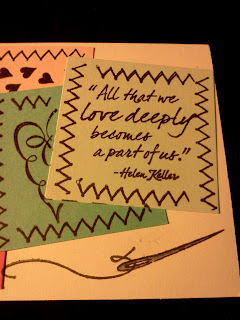 "All that we
love deeply
becomes
a part of us."
-Helen Keller